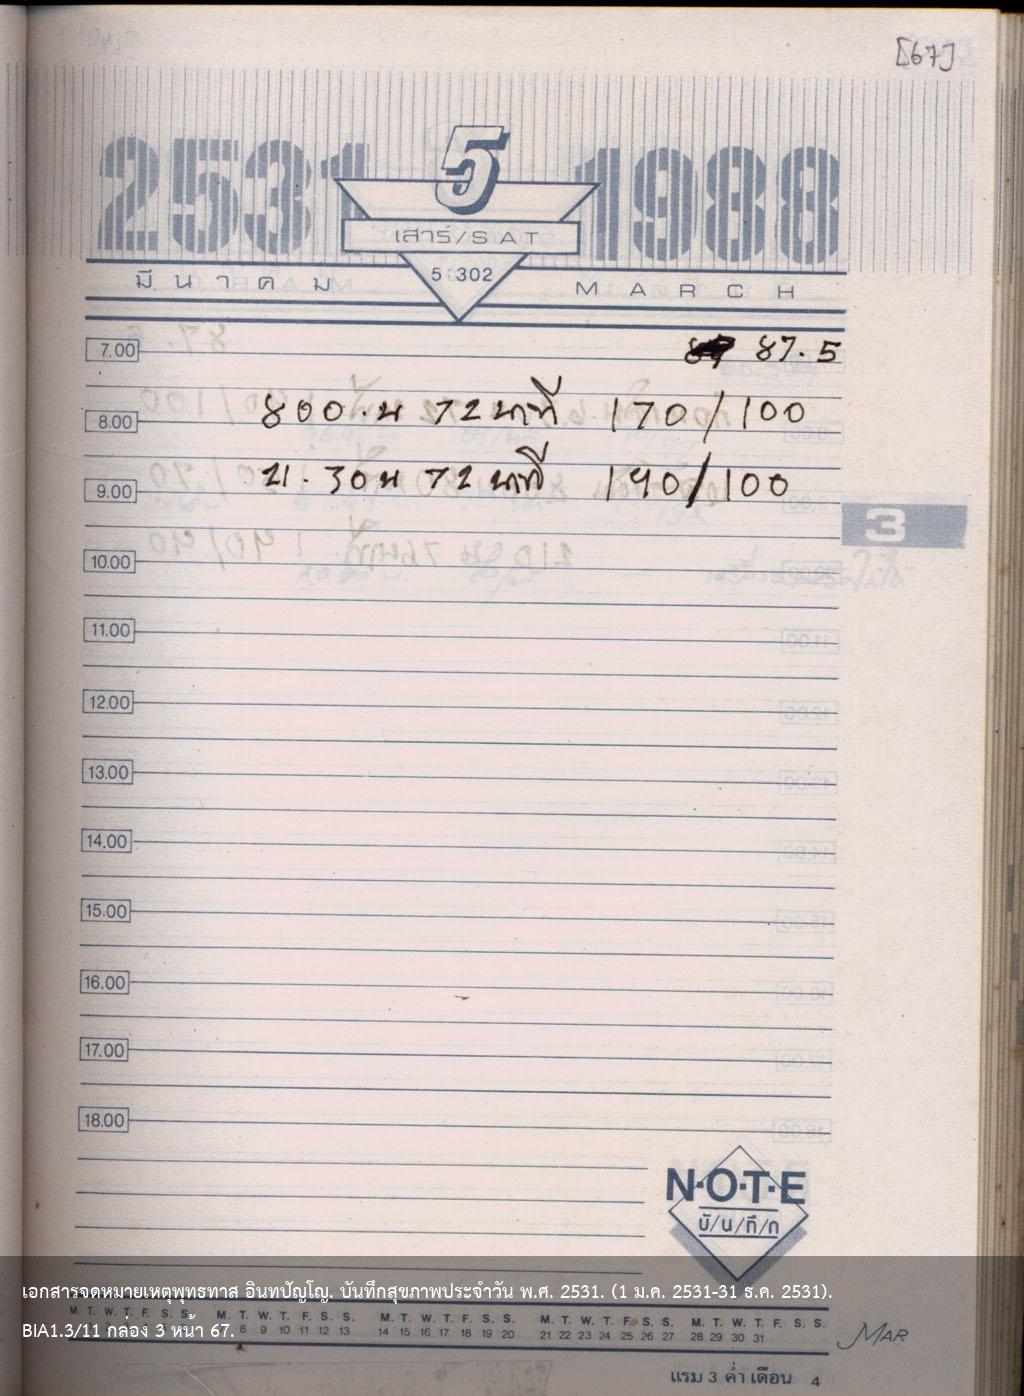 [67]
2531 5 1988
เสาร์/SAT
5:302
มีนาคม MARCH
7.00 87.5
8.00 800.น 72 นาที 170/100
9.00 21.30น 72 นาที 190/100
3
10.00
11.00
12.00
13.00
14.00
15.00
16.00
17.00
18.00
N·O·T·E
บั/น/ทึ/ก
เอกสารจดหมายเหตุพุทธทาส อินทปัญโญ. บันทึกสุขภาพประจำวัน พ.ศ. 2531. (1 ม.ค. 2531-31 ธ.ค. 2531).
M. T. W. T. F. S. S. M. T. W. T. F. S. S. M. T. W. T. F. S. S. M. T. W. T. F. S. S. M. T. W. T. F. S. S.
BIA1.3/11 กล่อง 3 หน้า 67. 8 9 10 11 12 13 14 15 16 17 18 19 20 21 22 23 24 25 26 27 28 29 30 31
MAR
แรม 3 ค่ำ เดือน 4